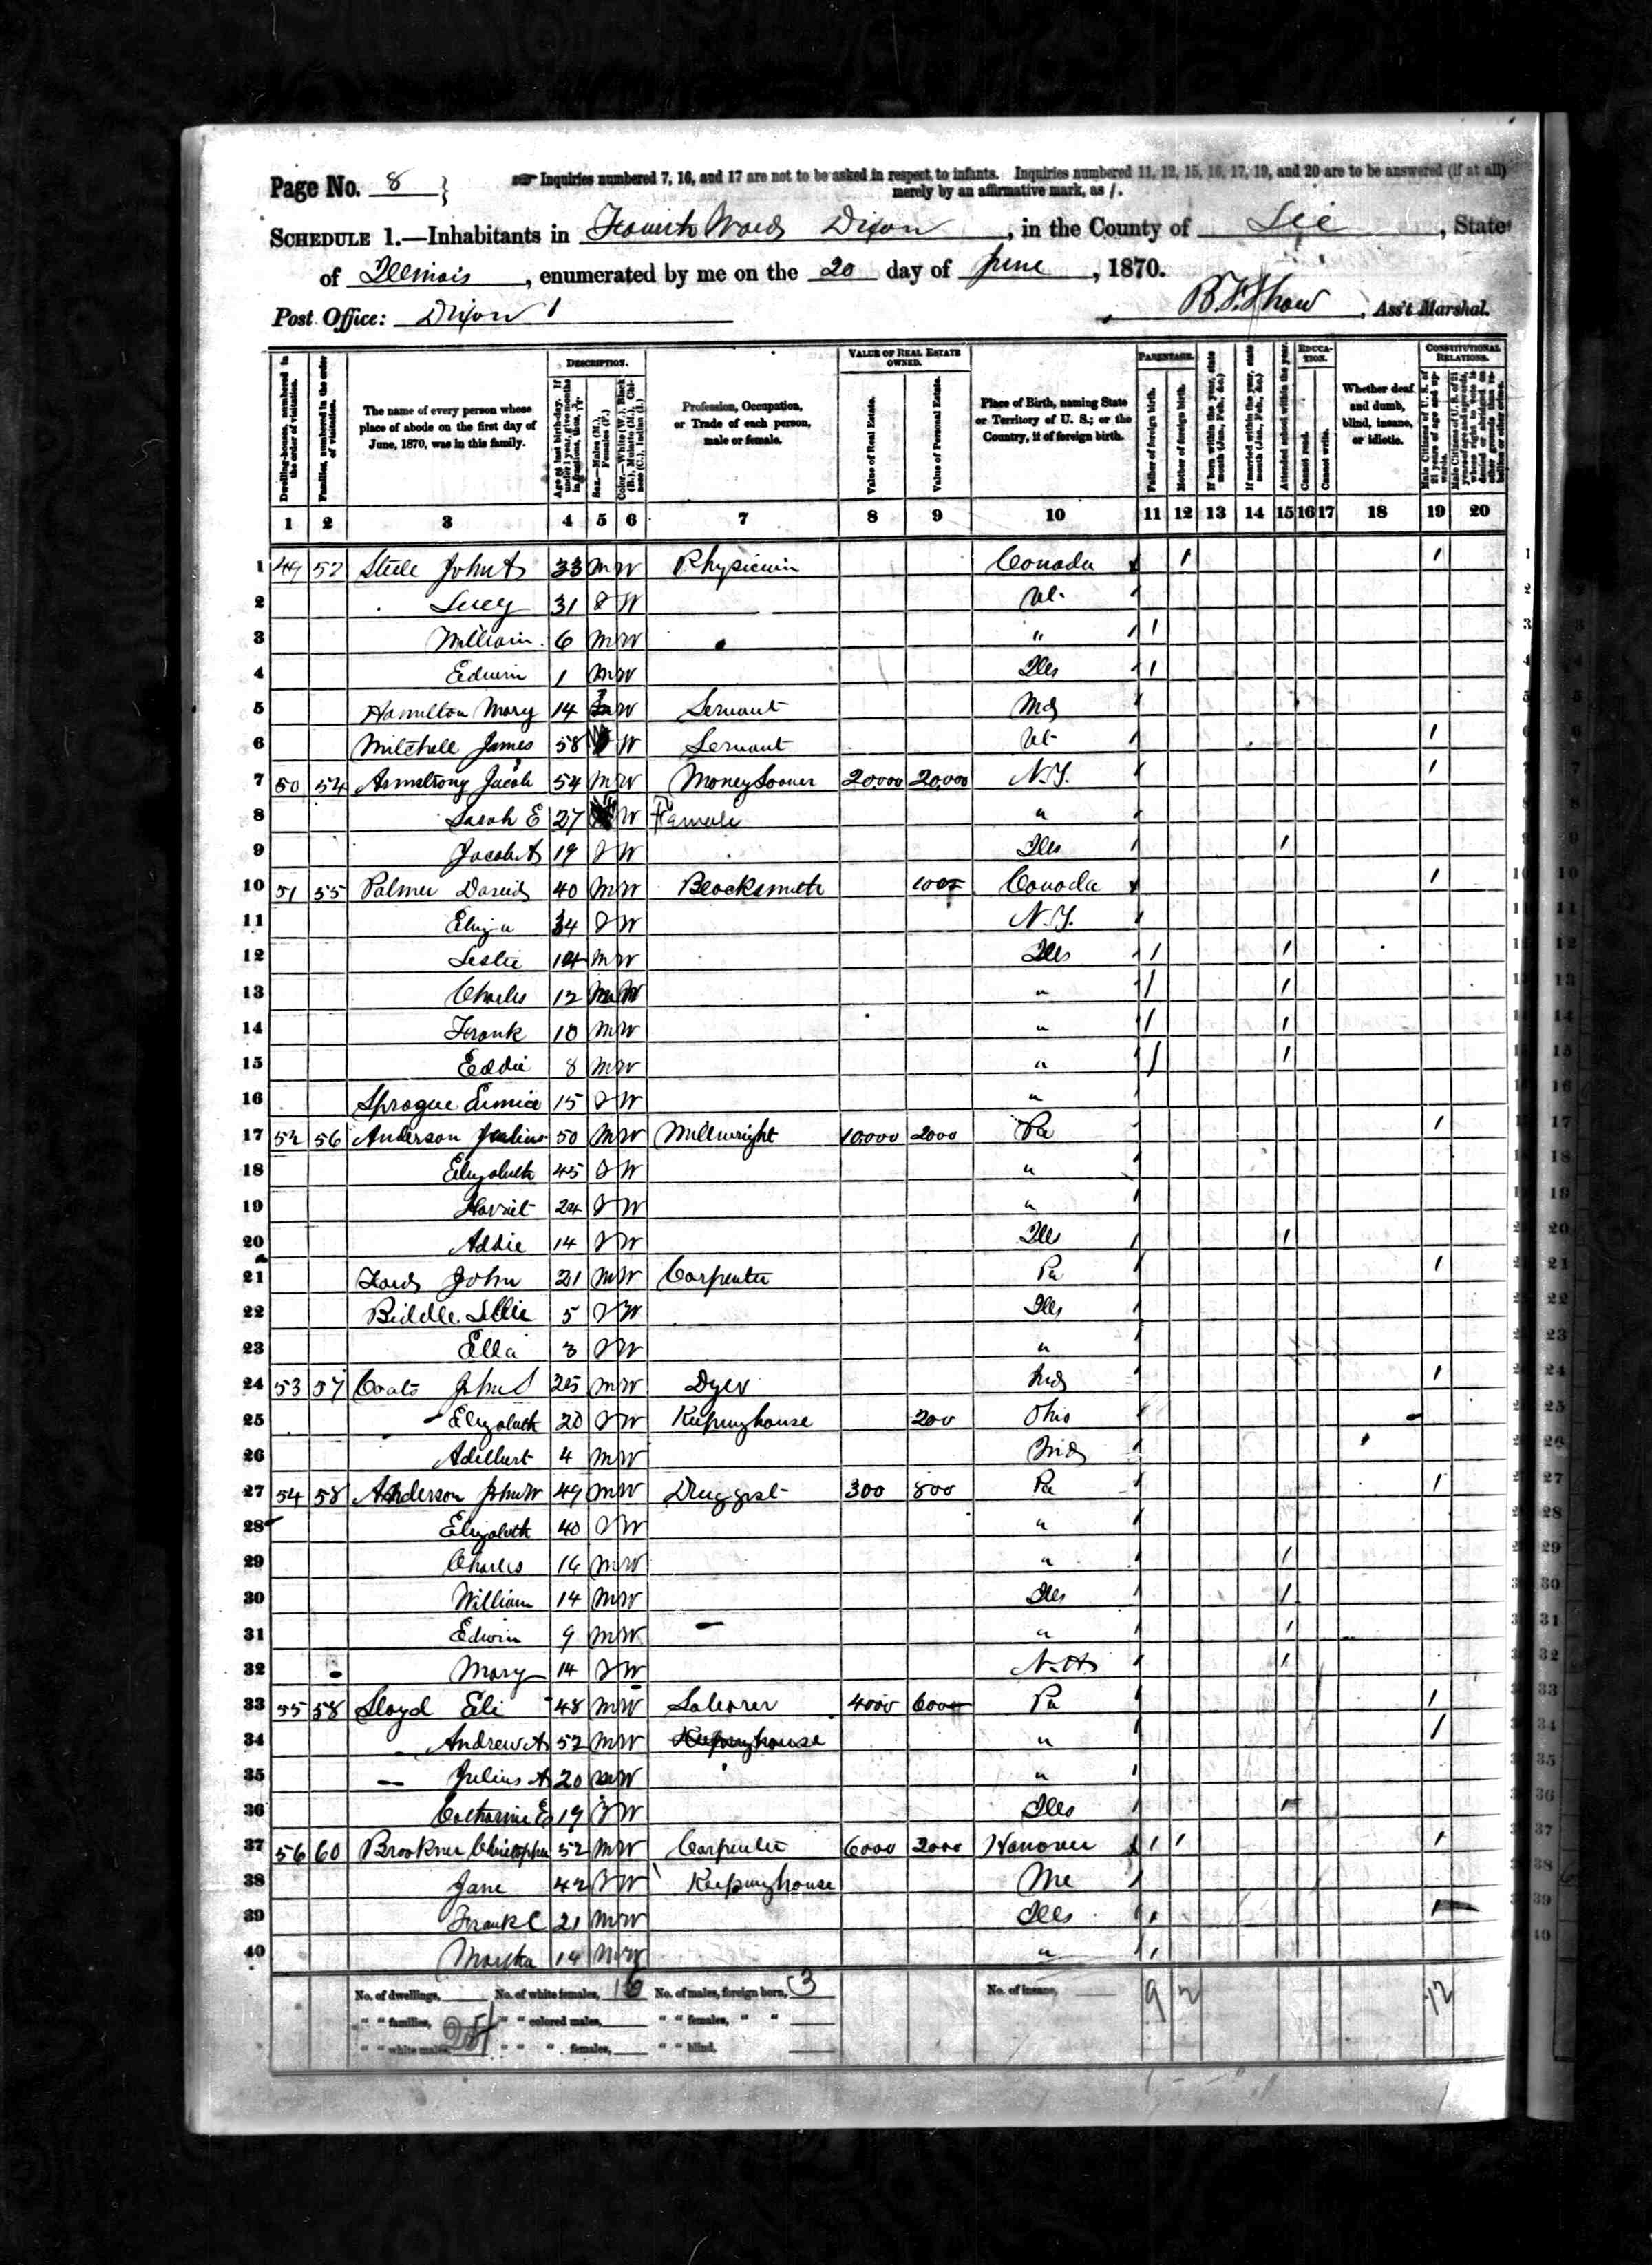 Page No. 8
Inquiries numbered 7, 16, and 17 are not to be asked in respect to infants. Inquiries numbered 11, 12, 15, 16, 17, 19, and 20 are to be answered (if at all)
merely by an affirmative mark, as /.
SCHEDULE 1.—Inhabitants in Fourth Ward Dixon, in the County of Lee, State
of Illinois, enumerated by me on the 20 day of June, 1870.
Post Office: Dixon
B. F. Shaw, Ass't Marshal.
DESCRIPTION. VALUE OF REAL ESTATE OWNED. PARENTAGE. EDUCATION. CONSTITUTIONAL RELATIONS.
Dwelling-houses, numbered in the order of visitation.
Families, numbered in the order of visitation.
The name of every person whose place of abode on the first day of June, 1870, was in this family.
Age at last birth-day. If under 1 year, give months in fractions, thus, 
Sex.—Males (M.), Females (F.)
Color.—White (W.), Black (B.), Mulatto (M.), Chinese (C.), Indian (I.)
Profession, Occupation, or Trade of each person, male or female.
Value of Real Estate.
Value of Personal Estate.
Place of Birth, naming State or Territory of U. S.; or the Country, if of foreign birth.
Father of foreign birth.
Mother of foreign birth.
If born within the year, state month (Jan., Feb., &c.)
If married within the year, state month (Jan., Feb., &c.)
Attended school within the year.
Cannot read.
Cannot write.
Whether deaf and dumb, blind, insane, or idiotic.
Male Citizens of U. S. of 21 years of age and upwards.
Male Citizens of U. S. of 21 years of age and upwards, whose right to vote is denied or abridged on other grounds than rebellion or other crime.
1 2 3 4 5 6 7 8 9 10 11 12 13 14 15 16 17 18 19 20
1 49 Steele John A 33 M W Physician Canada / /
2 Lucy 31 F W Vt /
3 William 6 M W " / /
4 Edwin 1 M W Ills / /
5 Hamilton Mary 14 F W Servant Md /
6 Mitchell James 58 W Servant Vt / /
7 50 54 Armstrong Jacob 54 M W Money Loaner 20,000 20,000 N.Y. / /
8 Sarah E 27 W Female " /
9 Jacob A 19 F W Ills / /
10 51 55 Palmer David 40 M W Blacksmith Canada /
11 Eliza 34 F W N.Y. /
12 Leslie 14 M W Ills / / /
13 Charles 12 M W " / /
14 Frank 10 M W " / /
15 Eddie 8 M W " / / /
16 Sprague Eunice 15 F W " /
17 52 56 Anderson 50 M W Millwright 10,000 2000 Pa / /
18 Elizabeth 45 F W " /
19 Harriet 24 F W " /
20 Addie 14 F W Ills / /
21 Ford John 21 M W Carpenter Pa / /
22 Biddle Lillie 5 F W Ills /
23 Ella 3 F W " /
24 53 57 Coats John S 25 M W Dyer Ind / /
25 Elizabeth 20 F W Keeping house 200 Ohio /
26 Adelbert 4 M W Ind /
27 54 58 Anderson John W 49 M W Druggist 300 800 Pa / /
28 Elizabeth 40 F W " /
29 Charles 16 M W " / /
30 William 14 M W Ills / /
31 Edwin 9 M W " / /
32 Mary 14 F W N. H / /
33 55 58 Lloyd Eli 48 M W Laborer 4000 6000 Pa / /
34 Andrew A 52 M W Keeping house " / /
35 Julius A 20 M W " /
36 Catharine E 19 F W Ills / /
37 56 60 Brookner Christopher 52 M W Carpenter 6000 2000 Hanover / / /
38 Jane 42 F W Keeping house Me /
39 Frank C 21 M W Ills / / /
40 Martha 14 M W " / /
No. of dwellings, No. of white females, 16 No. of males, foreign born, 3 No. of insane, 9 2 12
" " families, " " colored males, " " females, " "
" " white males, " " " females, " " blind,